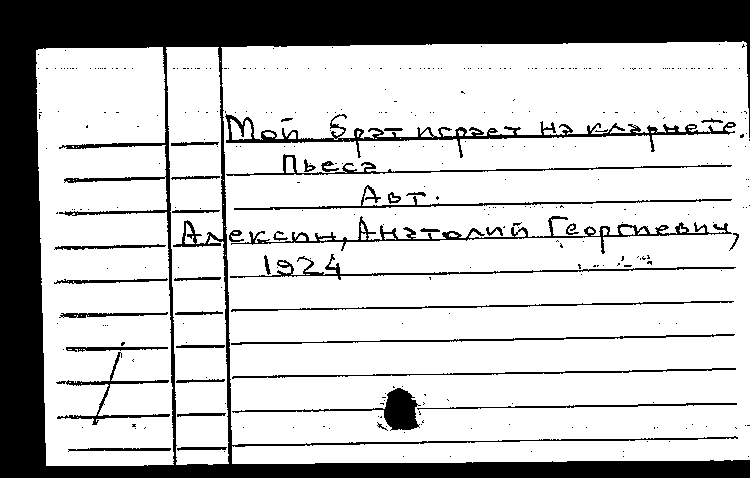 Мой брат играет на кларнете.
Пьеса.
Авт.
Алексин, Анатолий Георгиевич,
1924